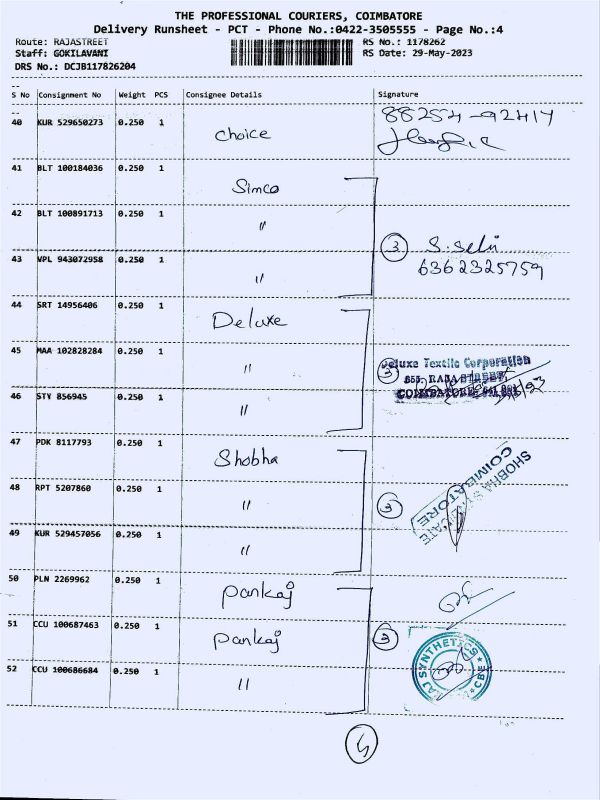 THE PROFESSIONAL COURIERS, COIMBATORE
Delivery Runsheet - PCT - Phone No.:0422-3505555 - Page No.:4
Route: RAJASTREET RS No.: 1178262
Staff: GOKILAVANI RS Date: 29-May-2023
DRS No.: DCJB117826204
--
S No Consignment No Weight PCS Consignee Details Signature
--
40 KUR 529650273 0.250 1 choice 88254-92414
41 BLT 100184036 0.250 1 Simco
42 BLT 100891713 0.250 1 "
43 VPL 943072958 0.250 1 " 3 S. Selvi
6362325759
44 SRT 14956406 0.250 1 Deluxe
45 MAA 102828284 0.250 1 " 3 Deluxe Textile Corporation
355, RAJA STREET,
46 STY 856945 0.250 1 " COIMBATORE
47 PDK 8117793 0.250 1 Shobha
48 RPT 5207860 0.250 1 " 3 SHOBHA
COIMBATORE
49 KUR 529457056 0.250 1 "
50 PLN 2269962 0.250 1 pankaj
51 CCU 100687463 0.250 1 pankaj 3
52 CCU 100686684 0.250 1 " RAJ SYNTHETICS ★ CBE ★